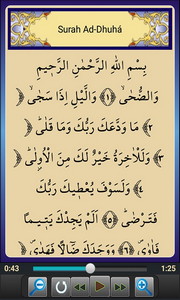 Surah Ad-Dhuhá
بِسْمِ اللّٰهِ الرَّحْمٰنِ الرَّحِيْمِ
وَالضُّحٰىۙ ﴿۱﴾ وَالَّيْلِ اِذَا سَجٰىۙ ﴿
۲﴾ مَا وَدَّعَكَ رَبُّكَ وَمَا قَلٰىؕ ﴿
۳﴾ وَلَلْاٰخِرَةُ خَيْرٌ لَّكَ مِنَ الْاُوْلٰىؕ ﴿
۴﴾ وَلَسَوْفَ يُعْطِيْكَ رَبُّكَ
فَتَرْضٰىؕ ﴿۵﴾ اَلَمْ يَجِدْكَ يَتِيْمًا
فَاٰوٰى ﴿۶﴾ وَوَجَدَكَ ضَآلًّا فَهَدٰى ﴿
0:43
1:25